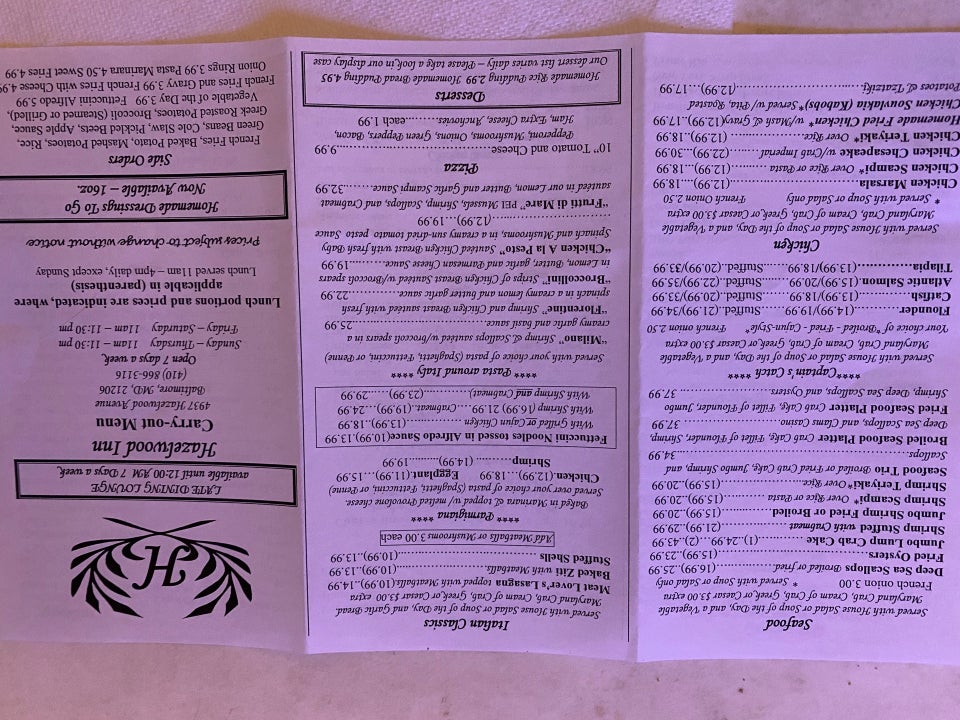 Seafood
Served with House Salad or Soup of the Day, and a Vegetable
Maryland Crab, Cream of Crab, Greek or Caesar $3.00 extra
French onion 3.00 * Served with Soup or Salad only
Deep Sea Scallops Broiled or fried......(16.99)..25.99
Fried Oysters......(15.99)..23.99
Jumbo Lump Crab Cake......(1)(24.99)...(2)..44.99
Shrimp Stuffed with Crabmeat......(21.99)..29.99
Jumbo Shrimp Fried or Broiled......(15.99)..20.99
Shrimp Scampi* Over Rice or Pasta......(15.99)..20.99
Shrimp Teriyaki* Over Rice......(15.99)..20.99
Seafood Trio Broiled or Fried Crab Cake, Jumbo Shrimp, and
Scallops......34.99
Broiled Seafood Platter Crab Cake, Fillet of Flounder, Shrimp,
Deep Sea Scallops, and Clams Casino......37.99
Fried Seafood Platter Crab Cake, Fillet of Flounder, Jumbo
Shrimp, Deep Sea Scallops and Oysters......37.99
****Captain's Catch ****
Served with House Salad or Soup of the Day, and a Vegetable
Maryland Crab, Cream of Crab, Greek or Caesar $3.00 extra
Your choice of *Broiled - Fried - Cajun-Style* French onion 2.50
Flounder......(14.99)/19.99......Stuffed..(21.99)/34.99
Catfish......(13.99)/18.99......Stuffed..(20.99)/33.99
Atlantic Salmon.(15.99)/20.99......Stuffed..(22.99)/35.99
Tilapia......(13.99)/18.99......Stuffed..(20.99)/33.99
Chicken
Served with House Salad or Soup of the Day, and a Vegetable
Maryland Crab, Cream of Crab, Greek or Caesar $3.00 extra
* Served with Soup or Salad only French Onion 2.50
Chicken Marsala......(12.99)...18.99
Chicken Scampi* Over Rice or Pasta......(12.99)...18.99
Chicken Chesapeake w/Crab Imperial......(22.99)...30.99
Chicken Teriyaki* Over Rice......(12.99)..18.99
Homemade Fried Chicken* w/Mash & Gravy(12.99)..17.99
Chicken Souvlakia (Kabobs)* Served w/Pita, Roasted
Potatoes & Tzatziki......(12.99)...17.99
Italian Classics
Served with House Salad or Soup of the Day, and Garlic Bread.
Maryland Crab, Cream of Crab, Greek or Caesar $3.00 extra
Meat Lover's Lasagna topped with Meatballs(10.99)..14.99
Baked Ziti with Meatballs......(10.99)..13.99
Stuffed Shells......(10.99)..13.99
Add Meatballs or Mushrooms 3.00 each
**** Parmigiana ****
Baked in Marinara & topped w/ melted Provolone cheese.
Served over your choice of pasta (Spaghetti, Fettuccini, or Penne)
Chicken.(12.99)...18.99 Eggplant(11.99)...15.99
Shrimp.........(14.99).......19.99
Fettuccini Noodles tossed in Alfredo Sauce(10.99).13.99
With Grilled or Cajun Chicken......(13.99)..18.99
With Shrimp (16.99) 21.99....Crabmeat.(19.99)...24.99
With Shrimp and Crabmeat)......(23.99).....29.99
**** Pasta around Italy ****
Served with your choice of pasta (Spaghetti, Fettuccini, or Penne)
"Milano" Shrimp & Scallops sautéed w/broccoli spears in a
creamy garlic and basil sauce......25.99
"Florentine" Shrimp and Chicken Breast sautéed with fresh
spinach in a creamy lemon and butter garlic sauce......22.99
"Broccolini" Strips of Chicken Breast Sautéed w/Broccoli spears
in Lemon, Butter, garlic and Parmesan Cheese Sauce......19.99
"Chicken A la Pesto" Sautéed Chicken Breast with fresh Baby
Spinach and Mushrooms, in a creamy sun-dried tomato pesto Sauce
......(12.99)...19.99
"Frutti di Mare" PEI Mussels, Shrimp, Scallops, and Crabmeat
sautéed in our Lemon, Butter and Garlic Scampi Sauce.......32.99
Pizza
10" Tomato and Cheese......9.99
Pepperoni, Mushrooms, Onions, Green Peppers, Bacon,
Ham, Extra Cheese, Anchovies.........each 1.99
Desserts
Homemade Rice Pudding 2.99 Homemade Bread Pudding 4.95
Our dessert list varies daily – Please take a look in our display case
H
LATE DINING LOUNGE
available until 12:00 AM 7 Days a week
Hazelwood Inn
Carry-out Menu
4937 Hazelwood Avenue
Baltimore, MD, 21206
(410) 866-3116
Open 7 days a week
Sunday – Thursday 11am – 11:30 pm
Friday – Saturday 11am – 11:30 pm
Lunch portions and prices are indicated, where
applicable in (parenthesis)
Lunch served 11am – 4pm daily, except Sunday
Prices subject to change without notice
Homemade Dressings To Go
Now Available – 16oz.
Side Orders
French Fries, Baked Potato, Mashed Potatoes, Rice,
Green Beans, Cole Slaw, Pickled Beets, Apple Sauce,
Greek Roasted Potatoes, Broccoli (Steamed or Grilled),
Vegetable of the Day 3.99 Fettuccini Alfredo 5.99
French Fries and Gravy 3.99 French Fries with Cheese 4.99
Onion Rings 3.99 Pasta Marinara 4.50 Sweet Fries 4.99